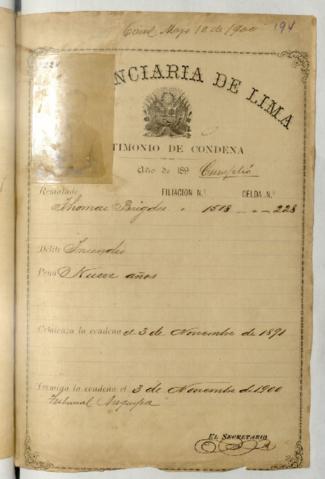 Mayo 10 de 1900 194
228
NCIARIA DE LIMA
TIMONIO DE CONDENA
Año de 189 Cumplió
Rematado FILIACION N.º CELDA N.º
Thomas 1513 228
Delito Incendio
Pena Nueve años
Comienza la condena el 3 de Noviembre de 1891
Termina la condena el 3 de Noviembre de 1900
Tribunal Arequipa
EL SECRETARIO